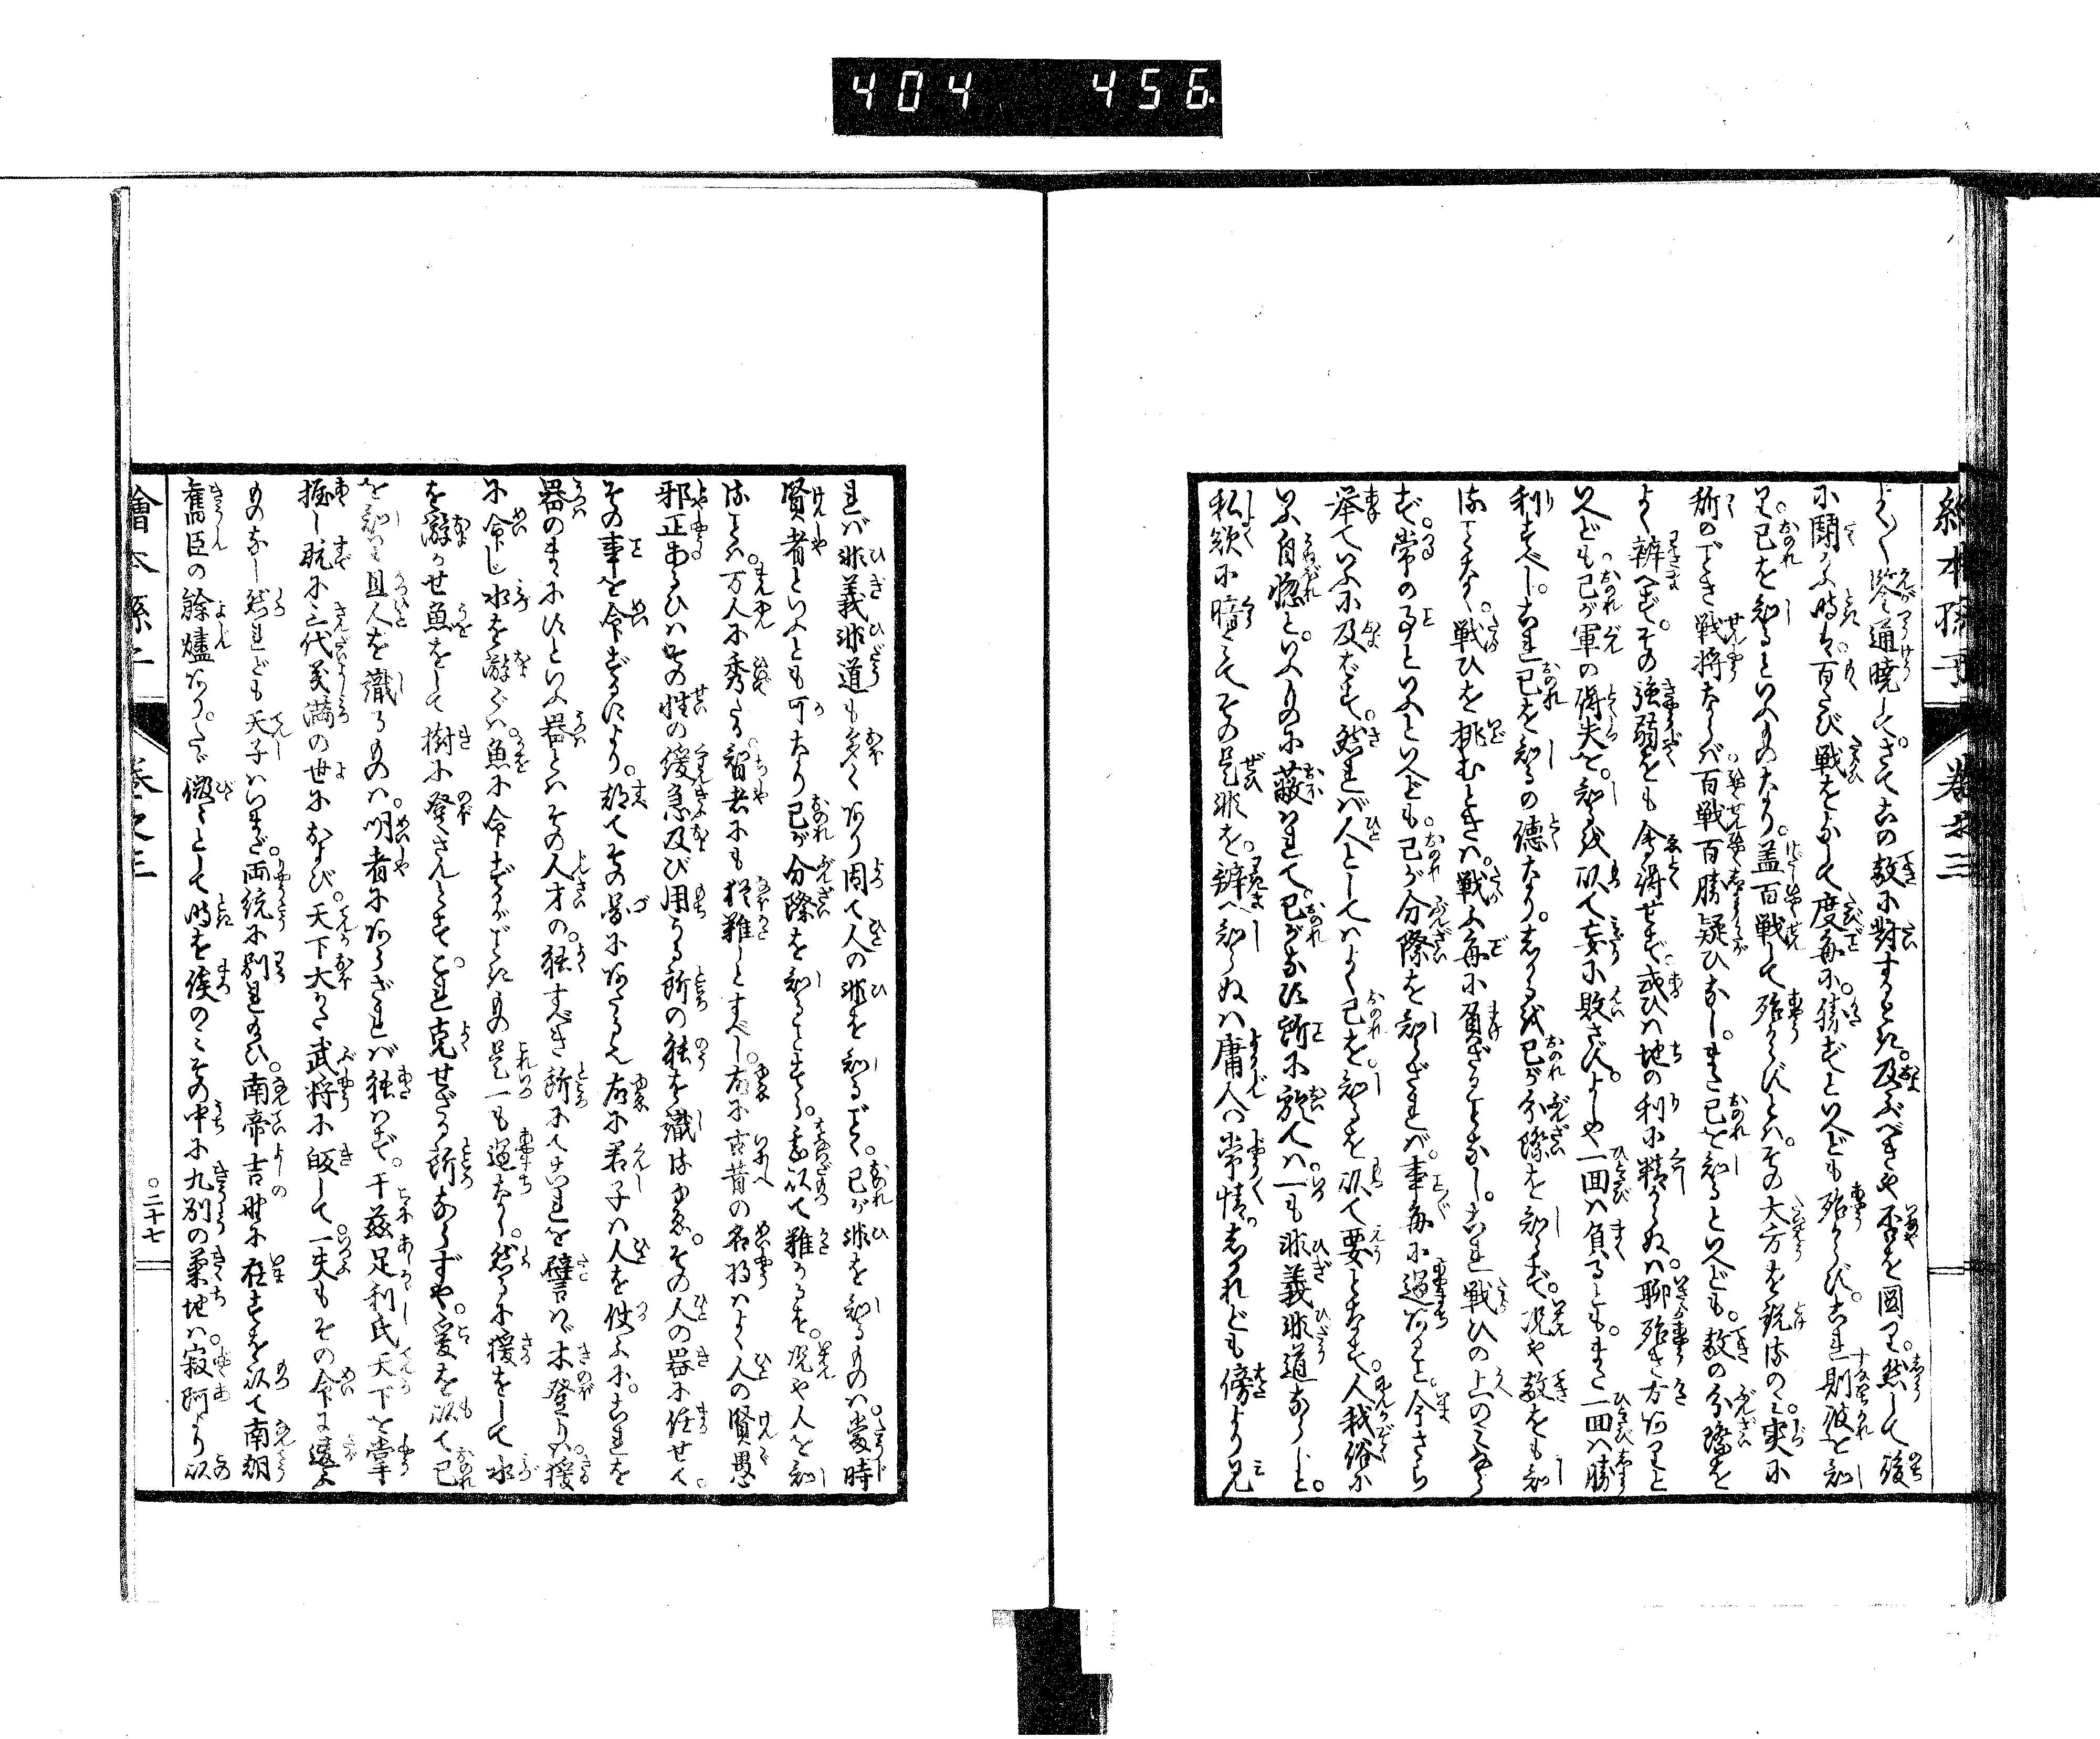 404 456
繪本孫子 卷之三
よく〳〵覧通曉して。さてその敵に對するとき。及ぶべきや否を圖り。然して後
に鬪ふ時は。百たび戰をなして度毎に。勝ずといへども殆からず。これ則彼を知
り己を知るといふものなり。蓋百戰して殆からずとは。その大方を説ものゝ実に
所のごとき戰將ならバ。百戰百勝疑ひなし。また己を知るといへども。敵の分際を
よく辨へず。その強弱をも會得せず。或ひハ地の利に精からぬハ。聊殆き方ありと
いへども。己が軍の得失を。知る故以て妄に敗さず。よしや一回ハ負るとも。また一回ハ勝
利すべし。これ己を知るの德なり。しかる故己が分際を知らず。况や敵をも知
ことなく。戰ひを挑むときハ。戰ふ毎に負ざることなし。これ戰ひの上のミなら
ず。常の事といふといへども。己が分際を知らざれバ。事毎に過あること。今さら
挙ていふに及ばず。然れバ人としてハよく己を。知るを以て要となす。人我俗に
いふ自惚と。いふものに蔽ハれて。己がなす所に於てハ。一も非義非道ならじと。
私欲に暗ミてその是非を。辨へ知らぬハ庸人の常情。しかれども傍より見
れバ非義非道も多くあり因て人の非を知るごとく。己が非を知るものハ。當時
賢者といふとも可なり己が分際を知ることすら。斯以て難かるを。况や人を知
ることハ。万人に秀たる。智者にも猶難しとすべし。故に古昔の名將ハよく人の賢愚
邪正あるひハその性の緩急及び用うる所の能を識るゆゑ。その人の器に任せて。
その事を命ずるによ り。都てその圖にあたる也故に君子ハ人を使ふに。これを
器のまゝにすといふ器とハその人才の。能すべき所にてこれを譬バ木登りハ。猿
に命じ水を游ぐハ。魚に命ずるがごときもの是一も過なし。然るに猿をして水
を游がせ魚をして樹に登さんとす。これ克せざる所ならずや。爰を以て己
を知り且人を識るものハ。明者にあらざれバ能ハず。于茲足利氏天下を掌
握し既に三代義満の世におよび。天下大かた武將に皈して一夫もその令に違ふ
ものなし然れども天子ハいまだ。両統に別れ給ひ。南帝吉野に在すを以て南朝
舊臣の餘燼あり。たゞ微々として時を俟のミその中に九別の菊地ハ寂阿より以
繪本孫子 卷之三 ○二十七